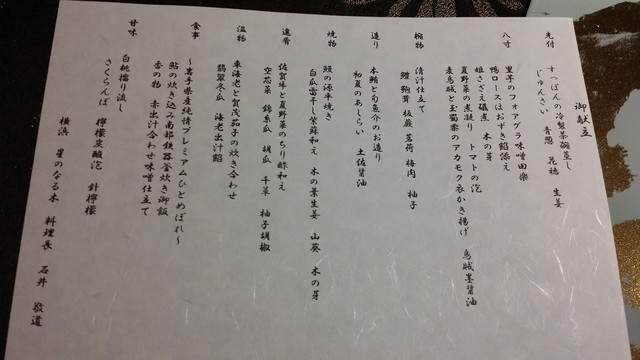 御献立
先付
すっぽんの冷製茶碗蒸し
じゅんさい 青葱 花穂 生姜
八寸
里芋のフォアグラ味噌田楽
鴨ロースほおずき餡添え
姫さざえ磯煮 木の芽
夏野菜の煮凝り トマトの泡
麦烏賊と玉蜀黍のアカモク衣かき揚げ 烏賊墨醤油
椀物
清汁仕立て
鱧 鮑茸 板蕨 茗荷 梅肉 柚子
造り
本鮪と旬魚介のお造り
初夏のあしらい 土佐醤油
焼物
鰻の源平焼き
白瓜雷干し紫蘇和え 木の葉生姜 山葵 木の芽
進肴
佐賀牛と夏野菜のちり酢和え
空芯菜 錦糸瓜 胡瓜 千草 柚子胡椒
温物
車海老と賀茂茄子の炊き合わせ
翡翠冬瓜 海老出汁餡
食事
〜岩手県産純情プレミアムひとめぼれ〜
鮎の炊き込み南部鉄器釜炊き御飯
香の物 赤出汁合わせ味噌仕立て
甘味
白桃擂り流し
さくらんぼ 檸檬炭酸泡 針檸檬
横浜 星のなる木 料理長 石井 敬道